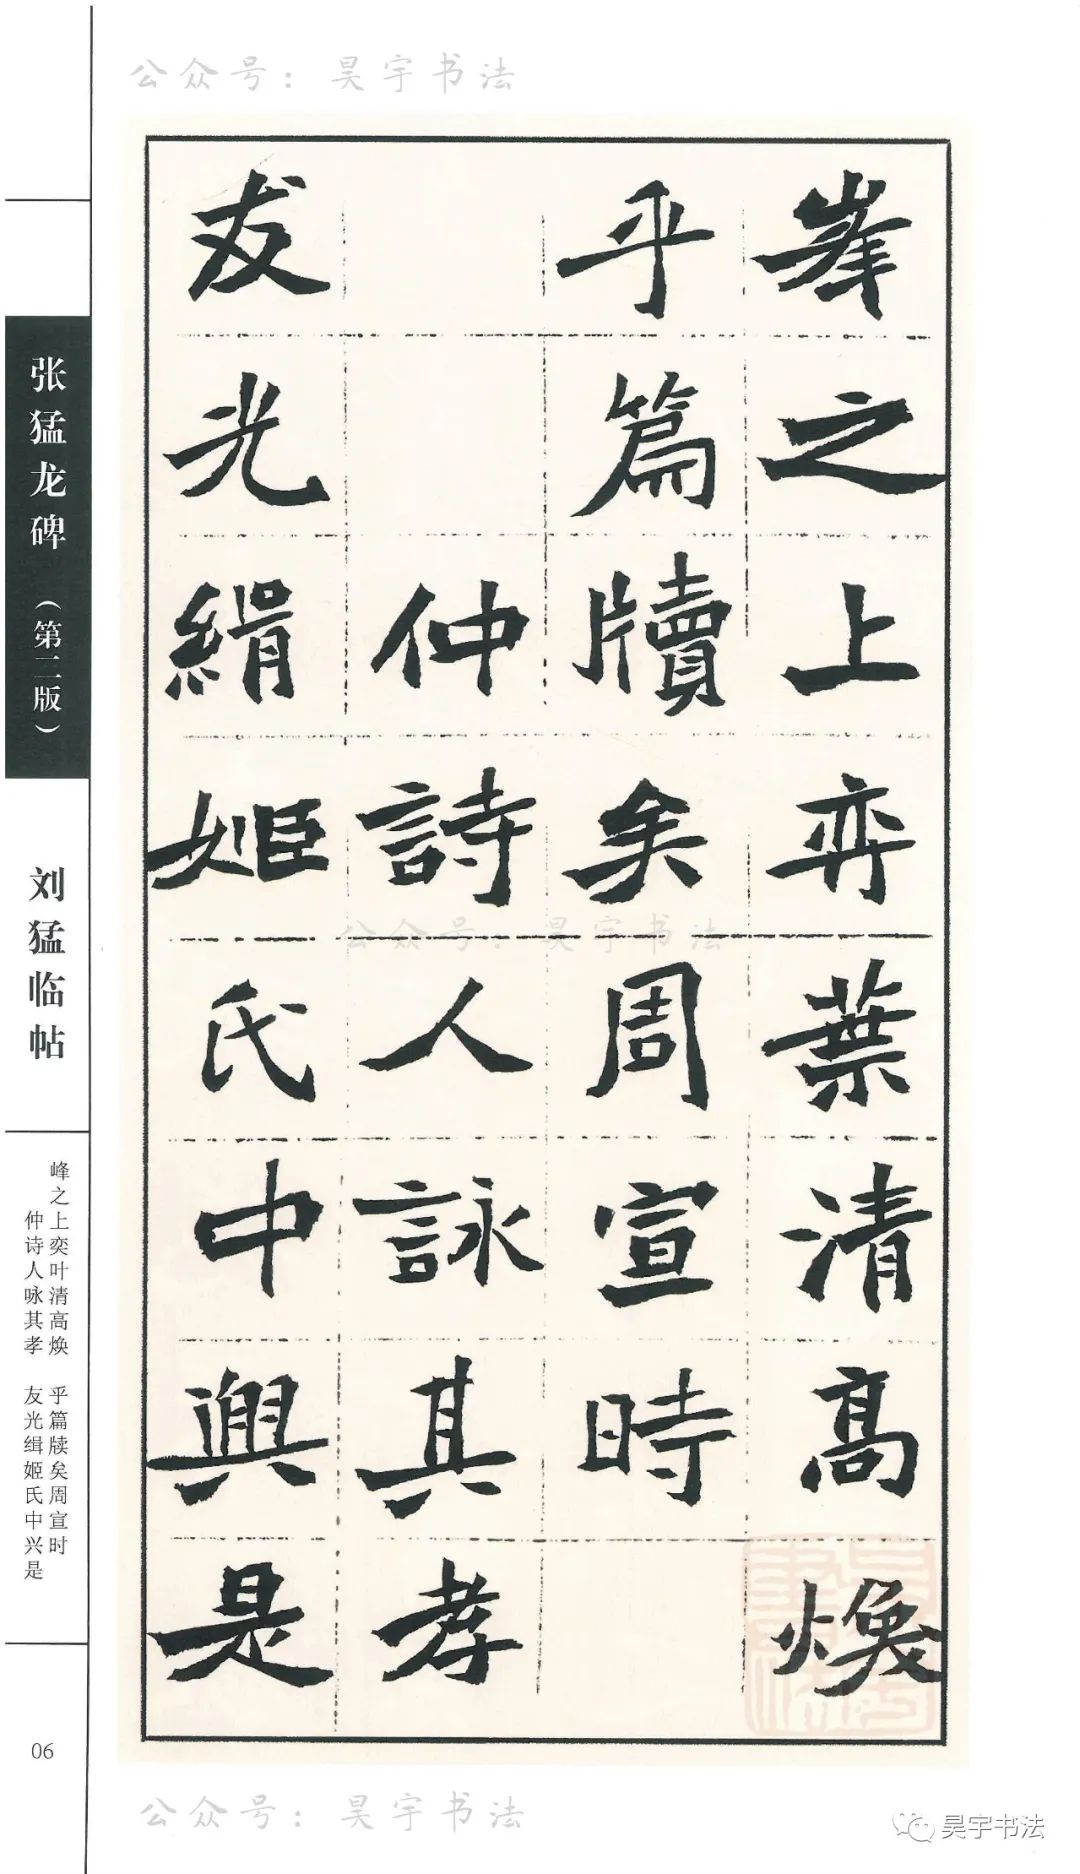 公众号：昊宇书法
峯之上弈葉清高煥
乎篇牘矣周宣時
仲詩人詠其孝
友光緝姬氏中興是
公众号：昊宇书法
张猛龙碑（第二版）
刘猛临帖
峰之上奕叶清高焕　乎篇牍矣周宣时
仲诗人咏其孝　友光缉姬氏中兴是
06
公众号：昊宇书法
昊宇书法